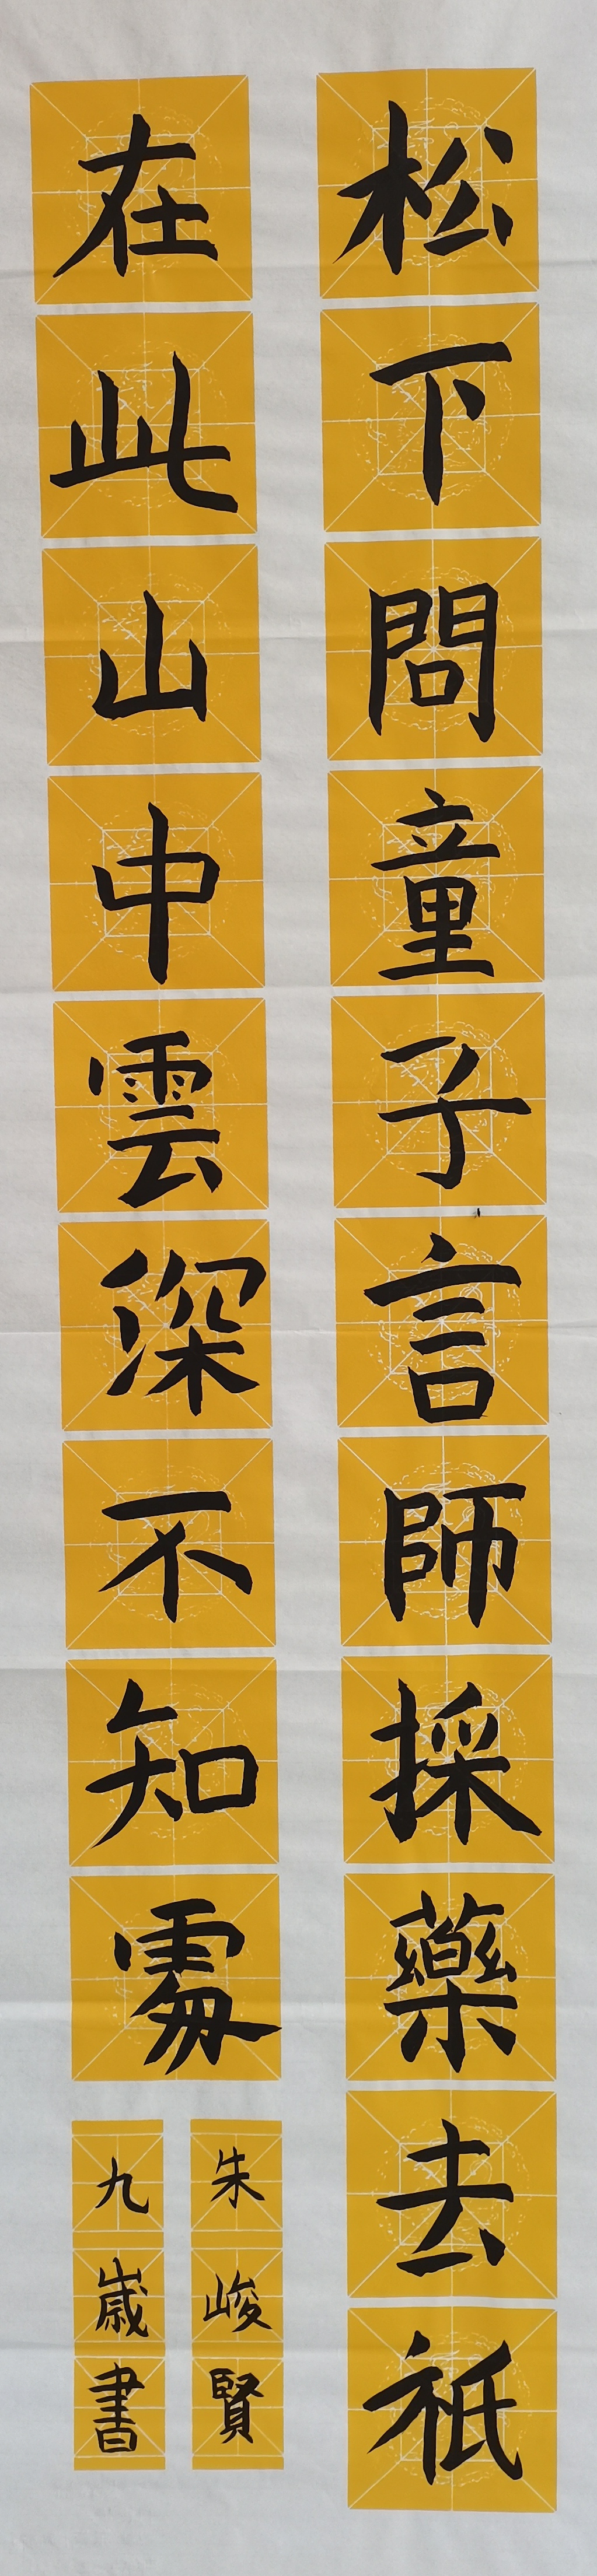 松下問童子言師採藥去祇
在此山中雲深不知處
朱峻賢
九歲書